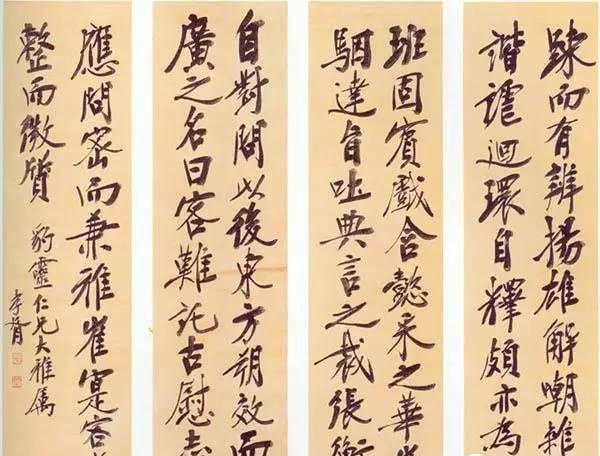 疎而有辨揚雄解嘲雜
諧謔迴環自釋頗亦為
班固賓戲含懿采之華
駰達旨吐典言之裁張衡
自對問以後東方朔效而
廣之名曰客難託古慰志
應問密而兼雅崔寔客
整而微質
豹靈仁兄大雅属